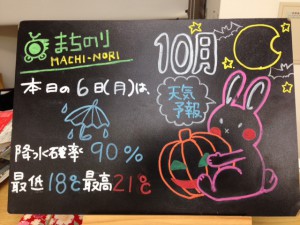 まちのり
MACHI-NORI
10月
本日の6日(月)は、
天気
予報
降水確率 90%
最低18℃最高21℃